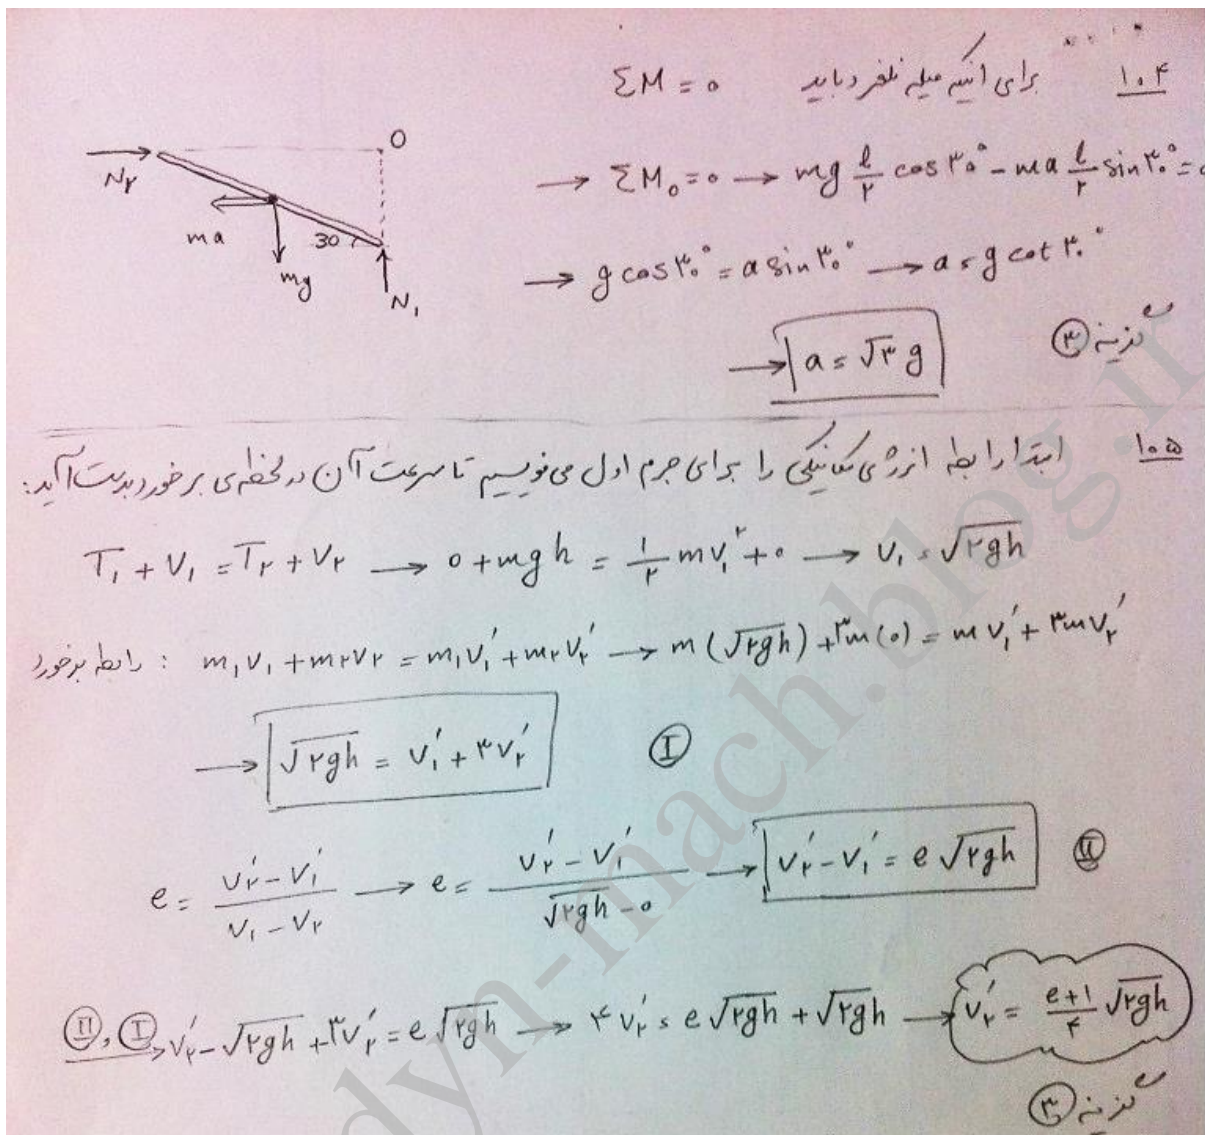 ۱۰۴ برای اینکه میله نلغزد باید ΣM = ۰
→ ΣM₀ = ۰ → mg l/۲ cos ۳۰° - ma l/۲ sin ۳۰° = ۰
→ g cos ۳۰° = a sin ۳۰° → a = g cot ۳۰°
→ a = √۳ g
گزینه ۳
O
N۲
ma
mg
30
N۱
۱۰۵ ابتدا رابطه انرژی مکانیکی را برای جرم اول می‌نویسیم تا سرعت آن در لحظه‌ی برخورد بدست آید:
T۱ + V۱ = T۲ + V۲ → ۰ + mgh = ۱/۲ mv۱² + ۰ → v۱ = √۲gh
رابطه برخورد : m۱v۱ + m۲v۲ = m۱v۱′ + m۲v۲′ → m(√۲gh) + ۳m(۰) = mv۱′ + ۳mv۲′
→ √۲gh = v۱′ + ۳v۲′ (I)
e = (v۲′ - v۱′)/(v۱ - v۲) → e = (v۲′ - v۱′)/(√۲gh - ۰) → v۲′ - v۱′ = e√۲gh (II)
(II), (I) → v۲′ - √۲gh + ۳v۲′ = e√۲gh → ۴v۲′ = e√۲gh + √۲gh → v۲′ = (e+۱)/۴ √۲gh
گزینه ۳
dyn-mach.blog.ir